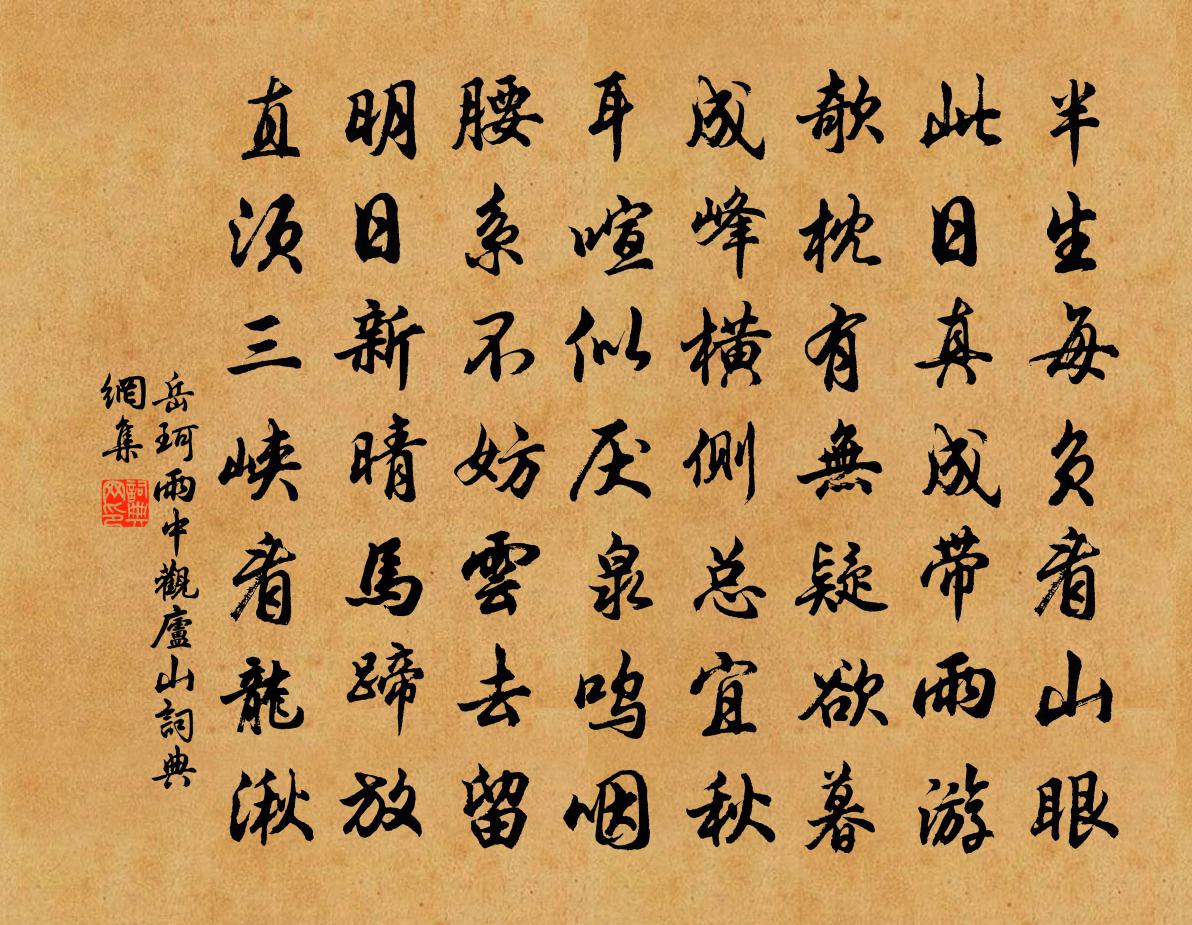 半生每负看山眼
此日真成带雨游
欹枕有無疑欲暮
成峰横侧总宜秋
耳喧似厌泉鸣咽
腰系不妨雲去留
明日新晴馬蹄放
直须三峡看龍湫
岳珂雨中觀廬山詞典
網集
詞典
网印